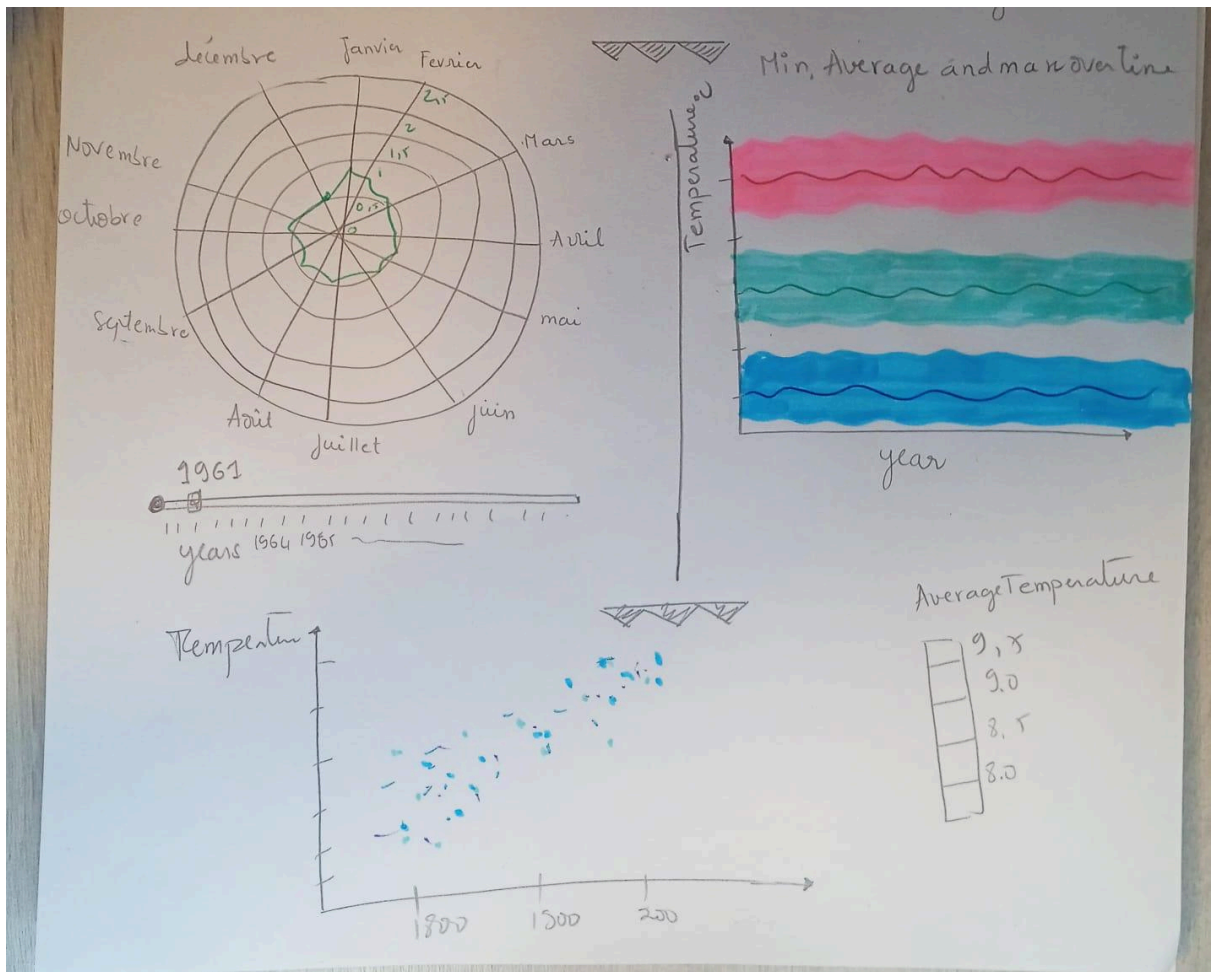 décembre
Janvier
Fevrier
2,5
2
1,5
1
0,5
0
Mars
Avril
mai
juin
Juillet
Août
Septembre
octobre
Novembre
1961
years 1964 1985
Min, Average and max over time
Temperature °C
year
Tempertur
1800
1900
200
Average Temperature
9,5
9.0
8,5
8.0